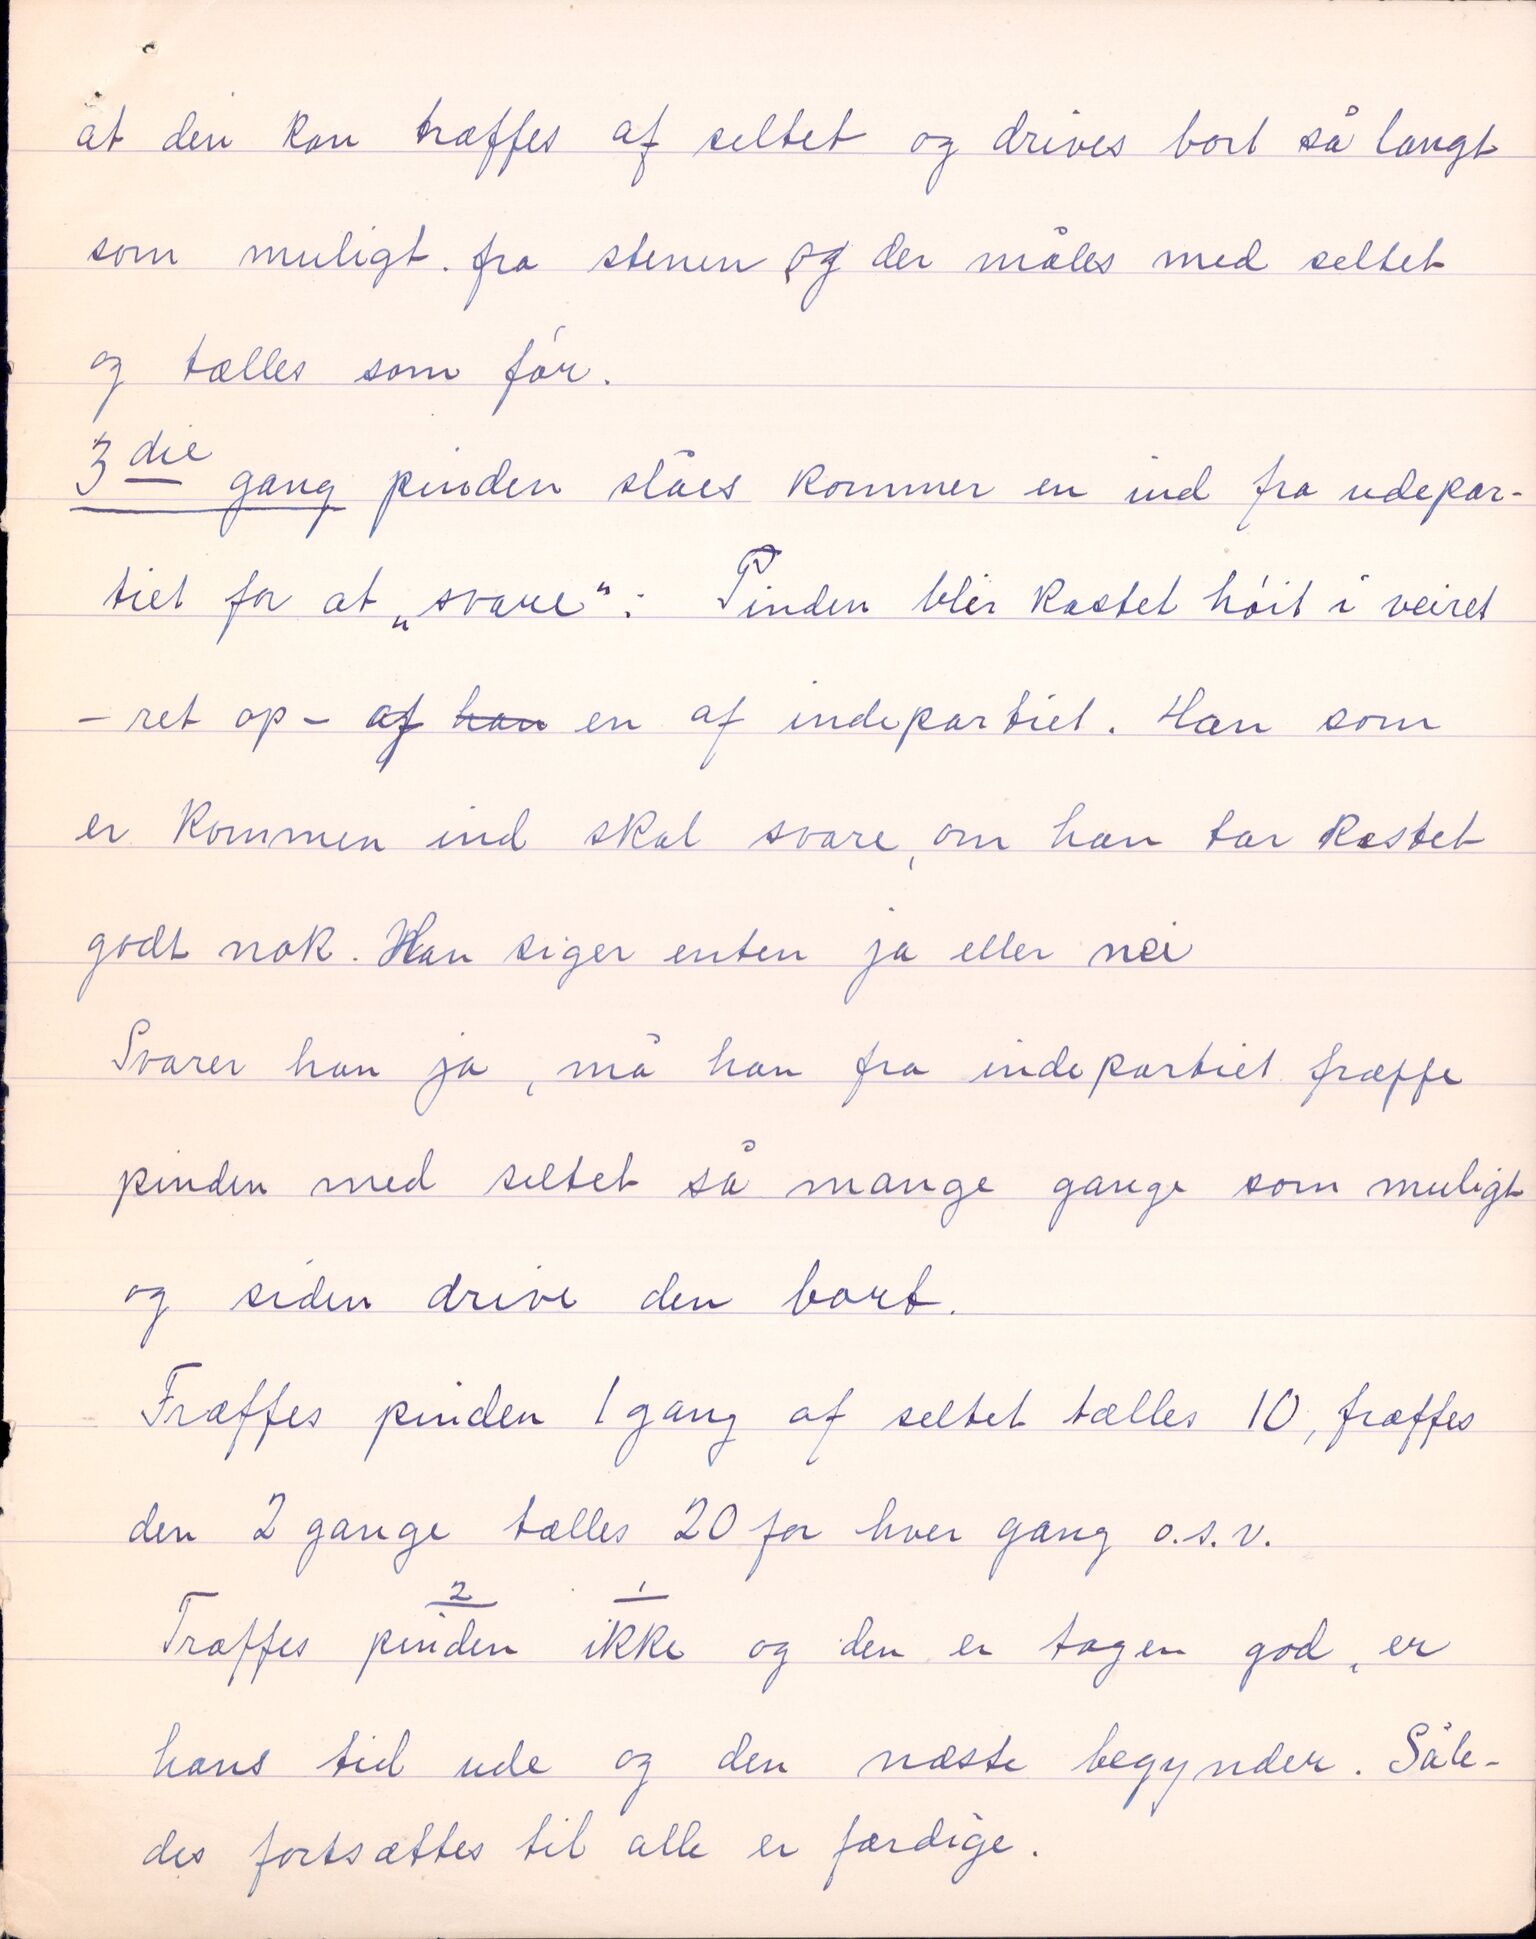 at den kan træffes af seltet og drives bort så langt
som muligt. fra stenen og der måles med seltet
og tælles som før.
3die gang pinden slåes kommer en ind fra udepar-
tiet for at „svare“: Pinden blir kastet høit i veiret
- ret op - af han en af indepartiet. Han som
er kommen ind skal svare, om han tar kastet
godt nok. Han siger enten ja eller nei
Svarer han ja, må han fra indepartiet fræffe
pinden med seltet så mange gange som muligt
og siden drive den bort.
Fræffes pinden 1 gang af seltet tælles 10, fræffes
den 2 gange tælles 20 for hver gang o.s.v.
2 1
Træffes pinden ikke og den er tagen god, er
hans tid ude og den næste begynder. Såle-
des fortsættes til alle er færdige.